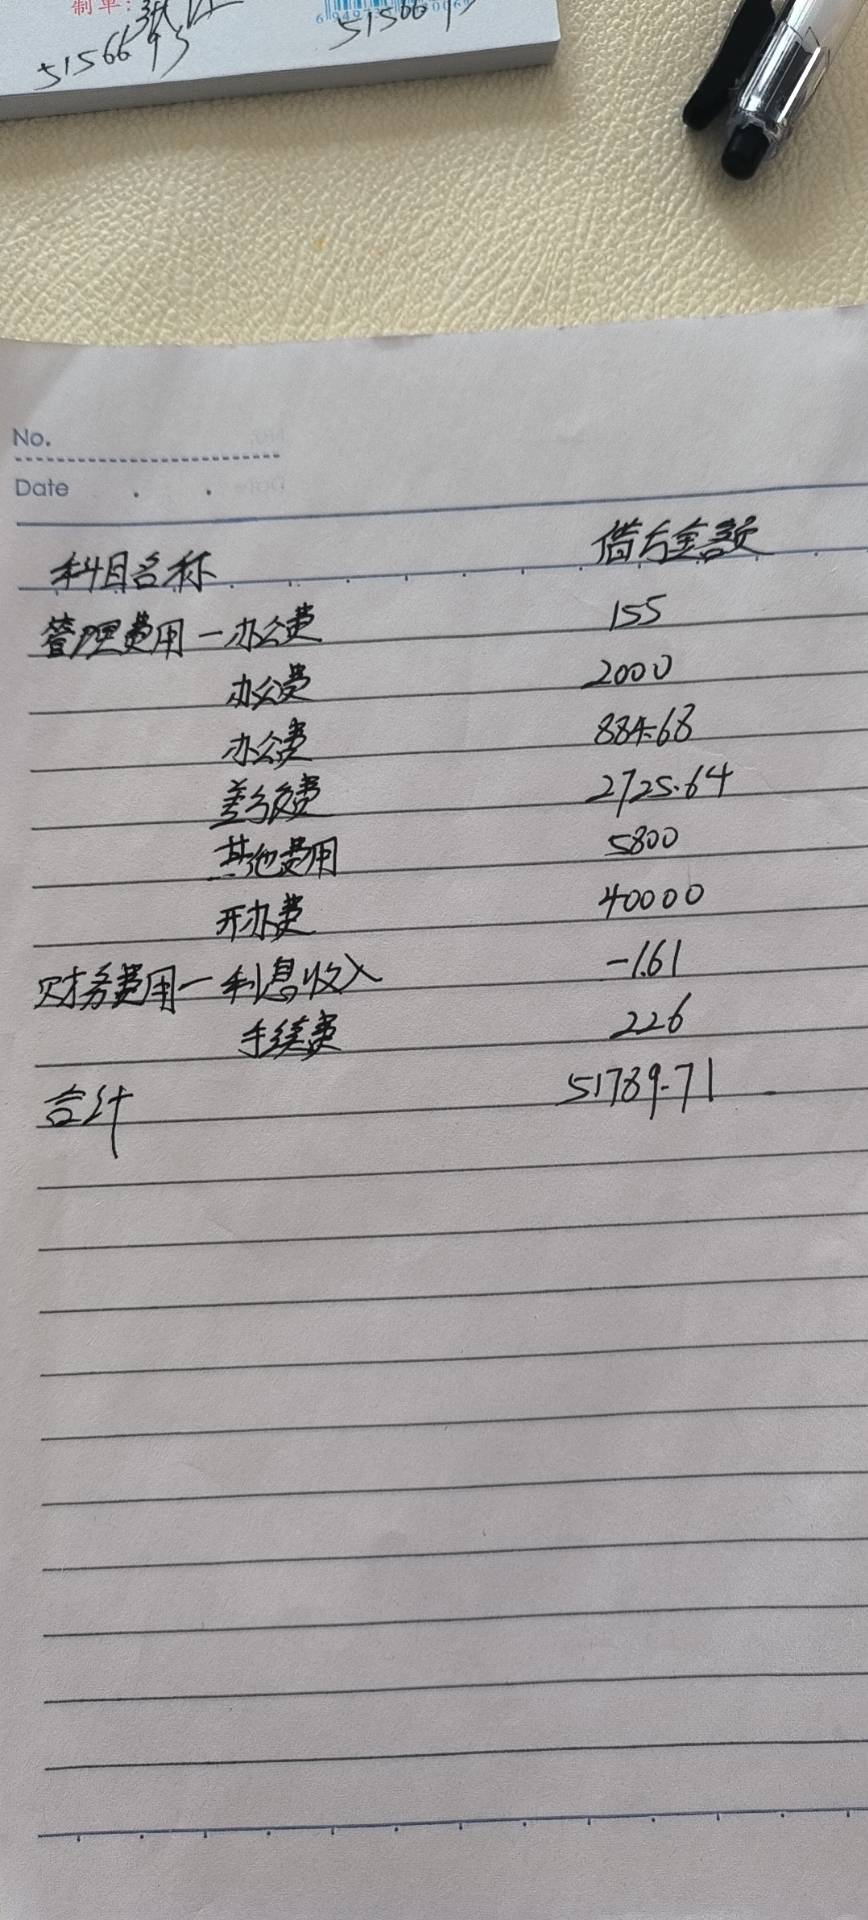 制单:
5156695
No.
Date
科目名称 借方金额
管理费用一办公费 155
办公费 2000
办公费 884.68
差旅费 2725.64
其他费用 5800
开办费 40000
财务费用一利息收入 -1.61
手续费 226
合计 51789.71